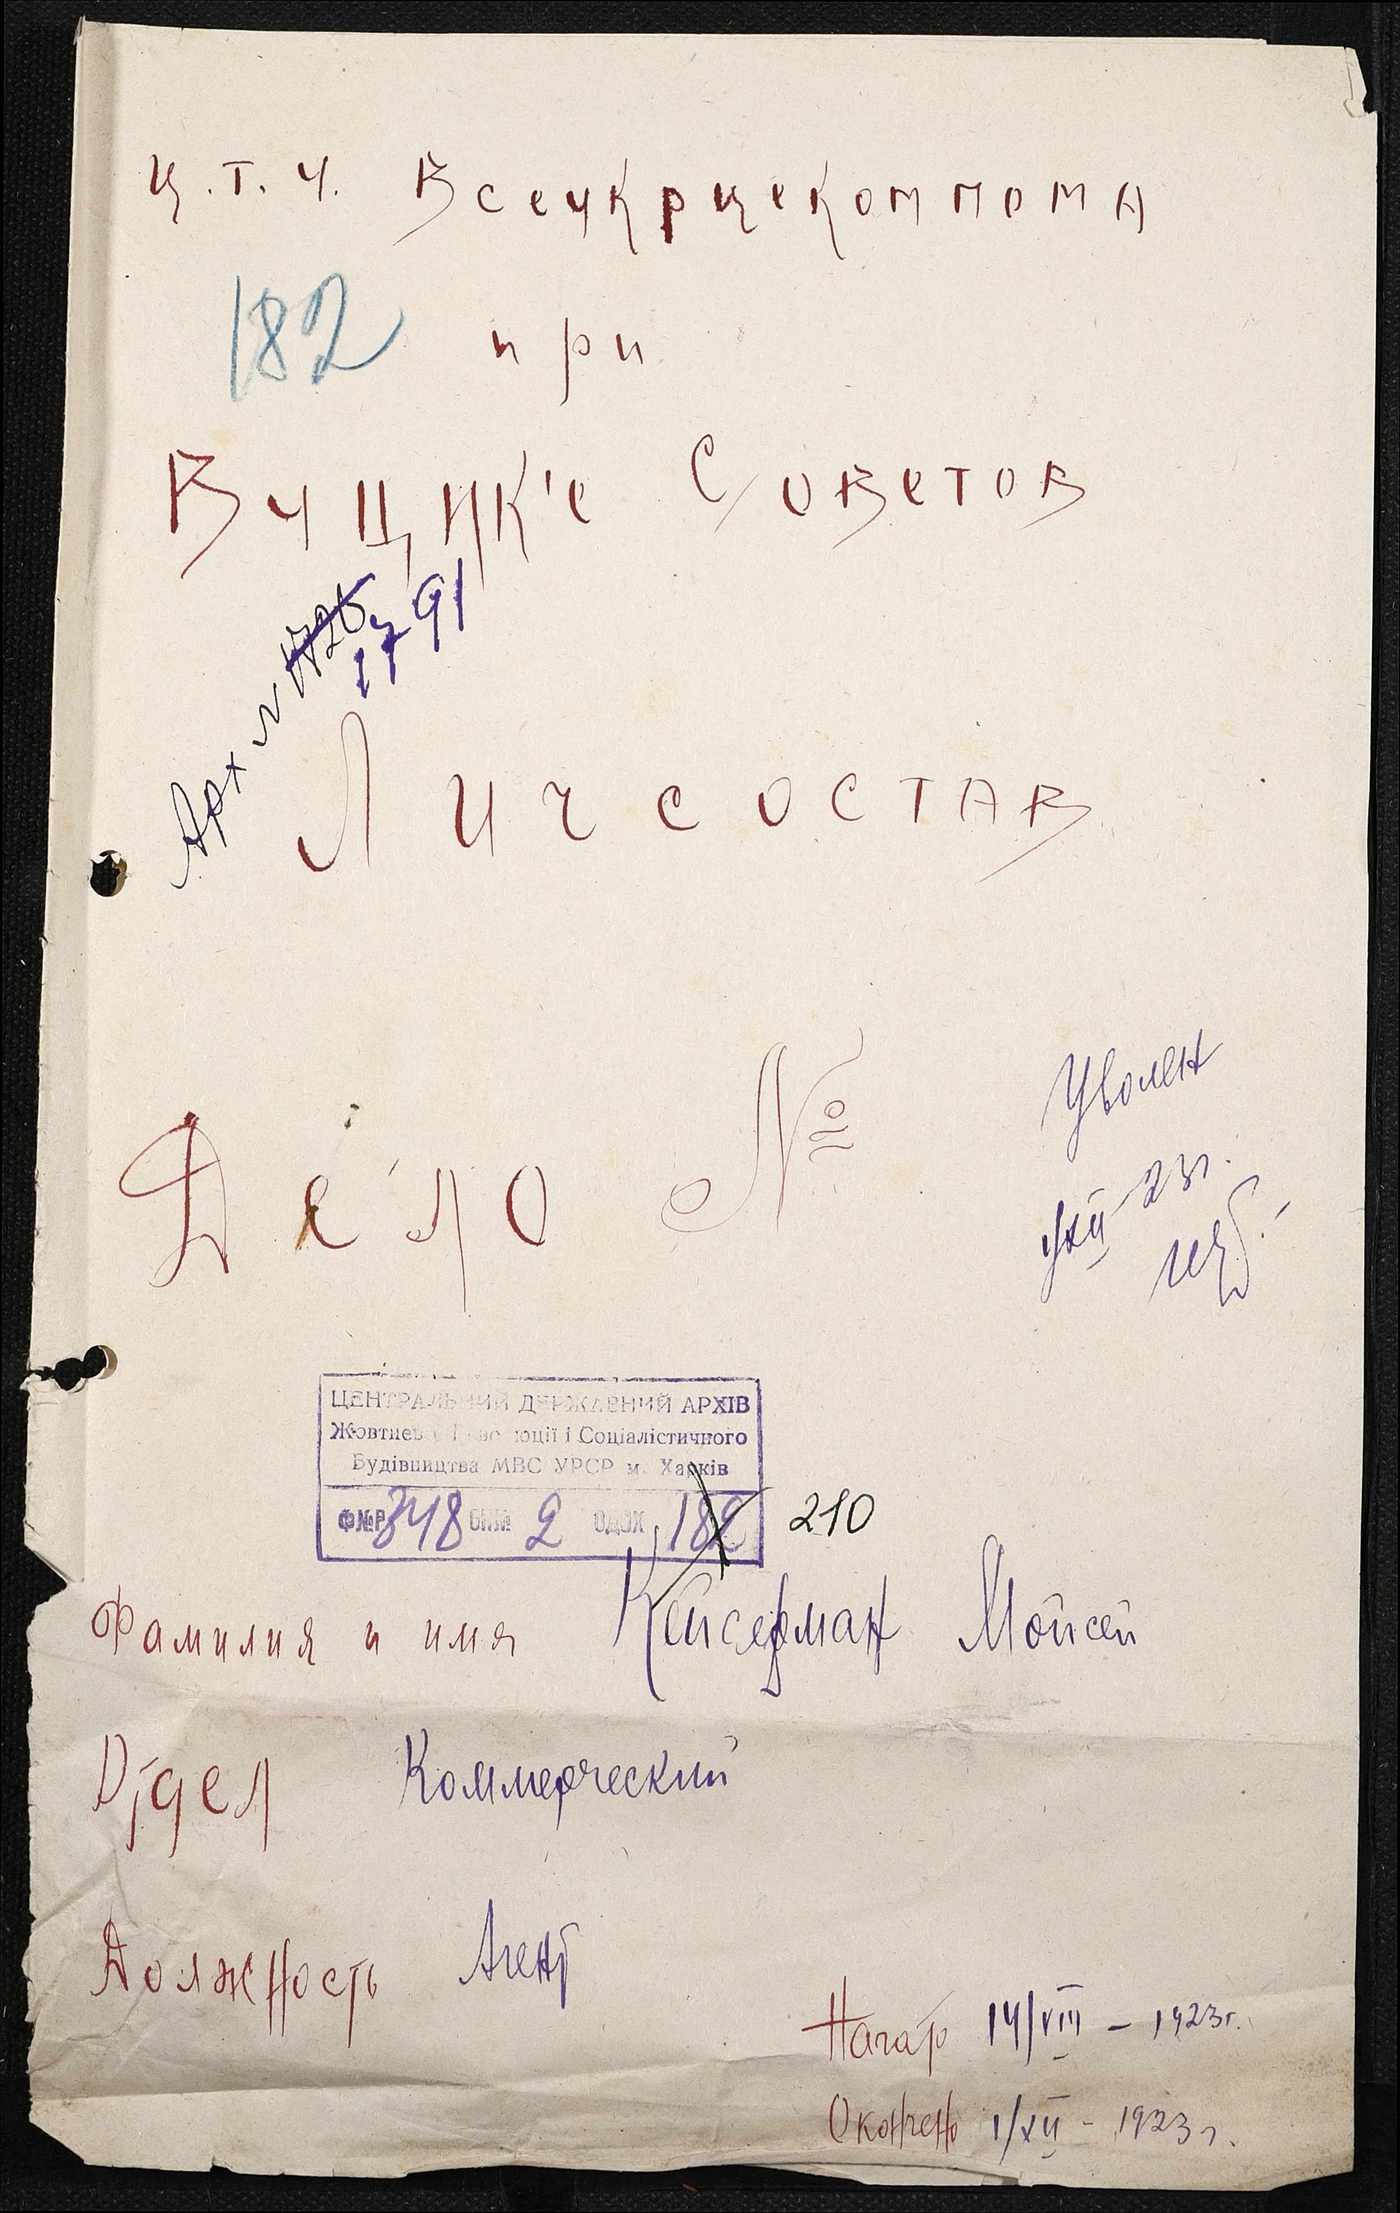 Ц.Т.У. Всеукрцекомпома
182 при
ВУЦИК'е Советов
Арх № 1726
1791
Личсостав
Дело №
Уволен
1/XII 23 г.
ЦЕНТРАЛЬНИЙ ДЕРЖАВНИЙ АРХІВ
Жовтневої Революції і Соціалістичного
Будівництва МВС УРСР м. Харків
Ф№Р 348 ОП.№ 2 ОД.ЗХ 182 210
Фамилия и имя Кейсерман Мойсей
Отдел Коммерческий
Должность Агент
Начато 14/VIII – 1923 г.
Окончено 1/XII – 1923 г.